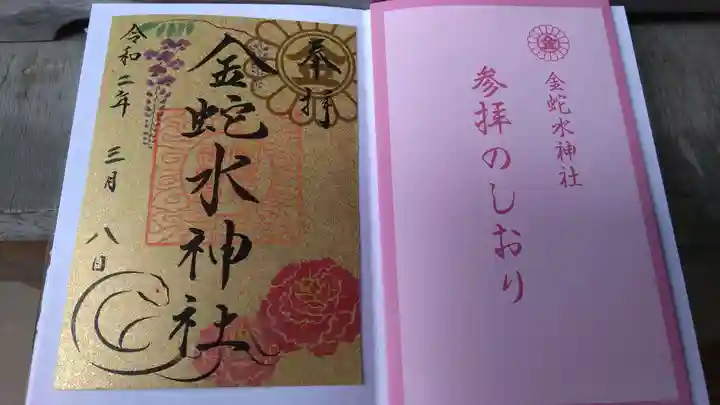 奉拝
金蛇水神社
令和二年
三月
八日
金
金蛇水神社
参拝のしおり